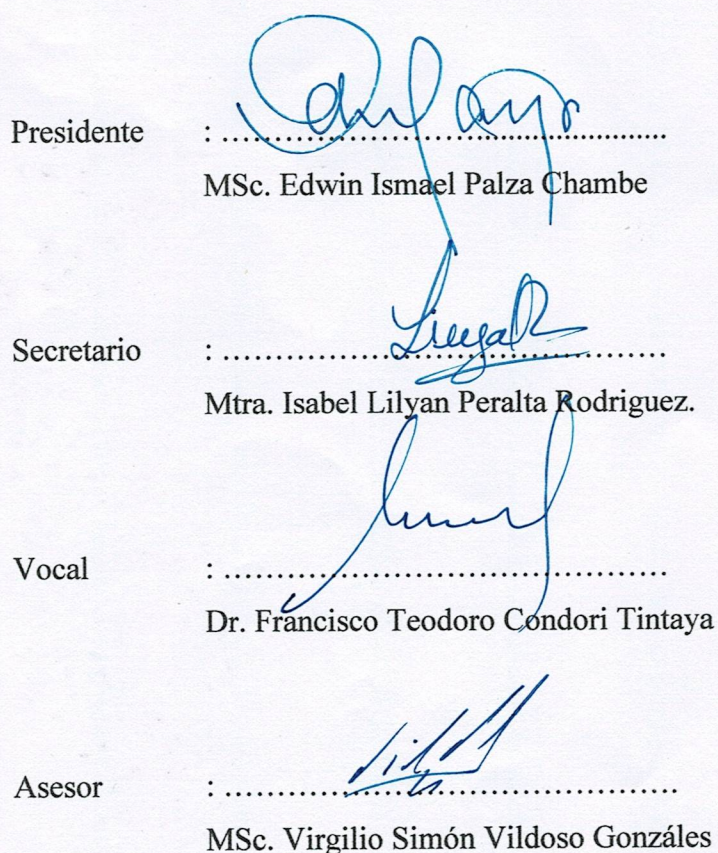 Presidente : ..........................................................
MSc. Edwin Ismael Palza Chambe
Secretario : ..........................................................
Mtra. Isabel Lilyan Peralta Rodriguez.
Vocal : ..........................................................
Dr. Francisco Teodoro Condori Tintaya
Asesor : ..........................................................
MSc. Virgilio Simón Vildoso Gonzáles